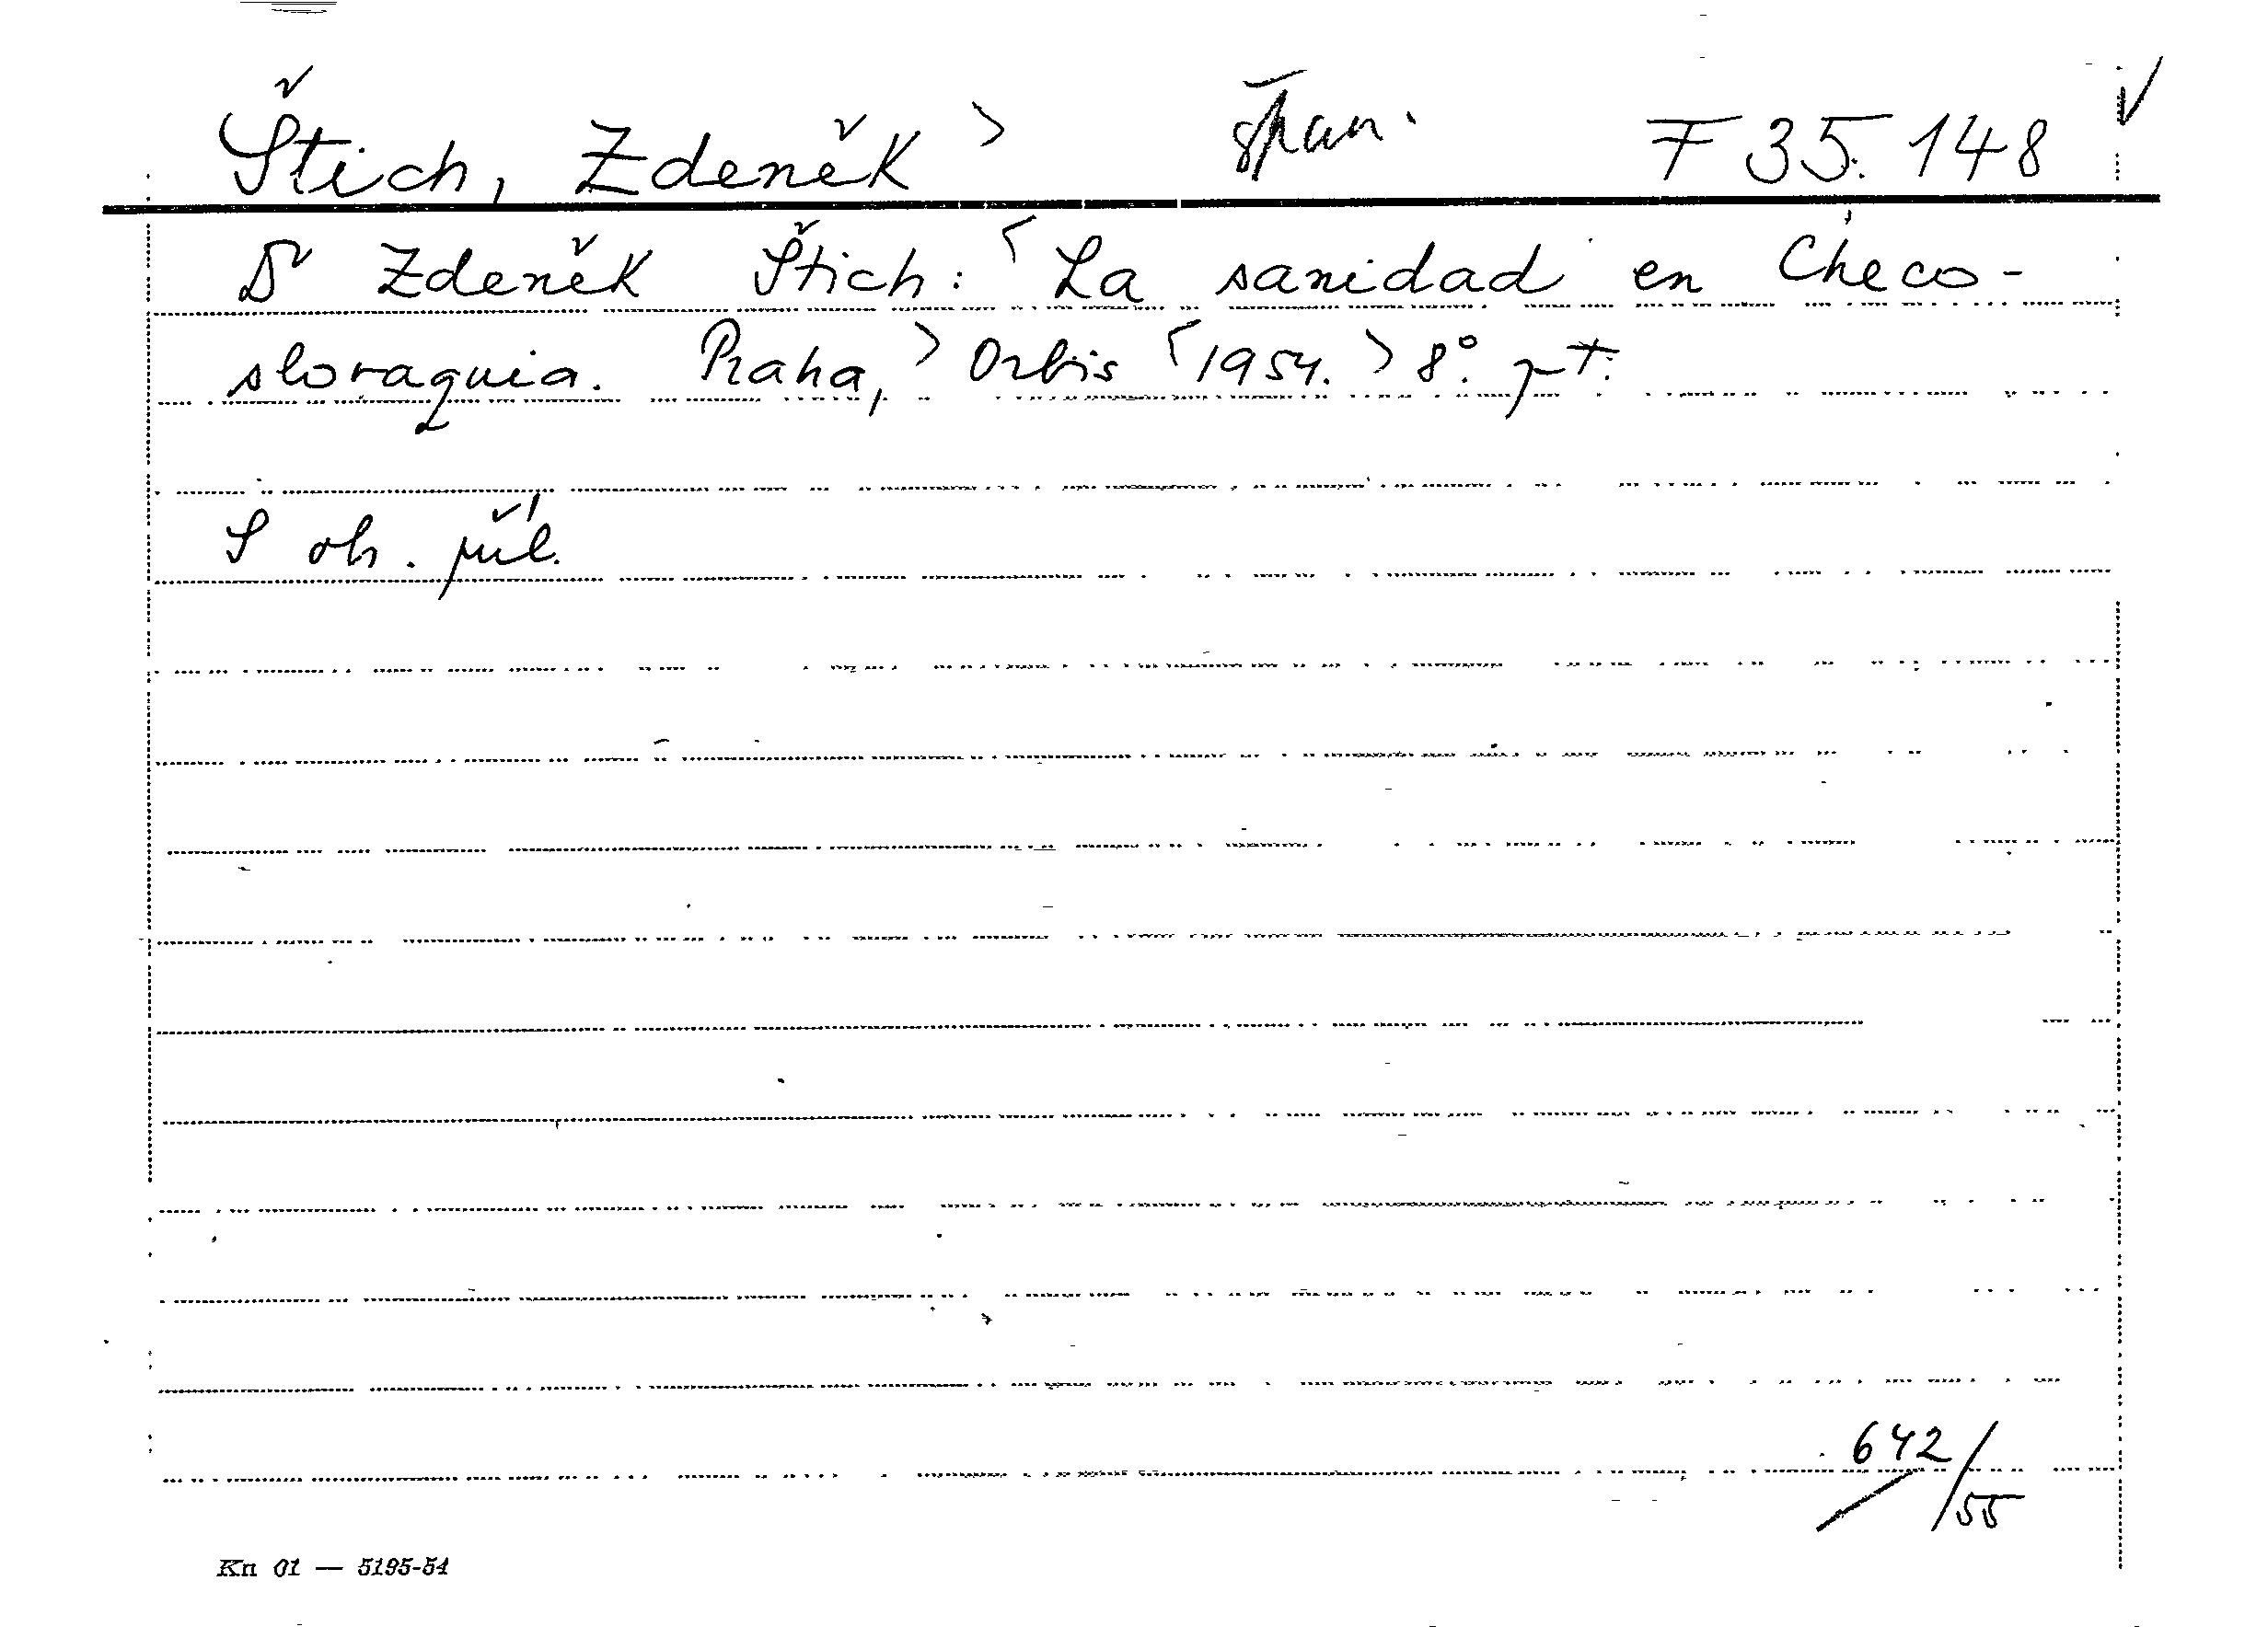 Štich, Zdeněk > špan. F 35.148
Dr Zdeněk Štich: < La sanidad en Checo-
slovaquia. Praha, > Orbis < 1954. > 8°.
S ob. příl.
642/55
Kn 01 — 5195-54